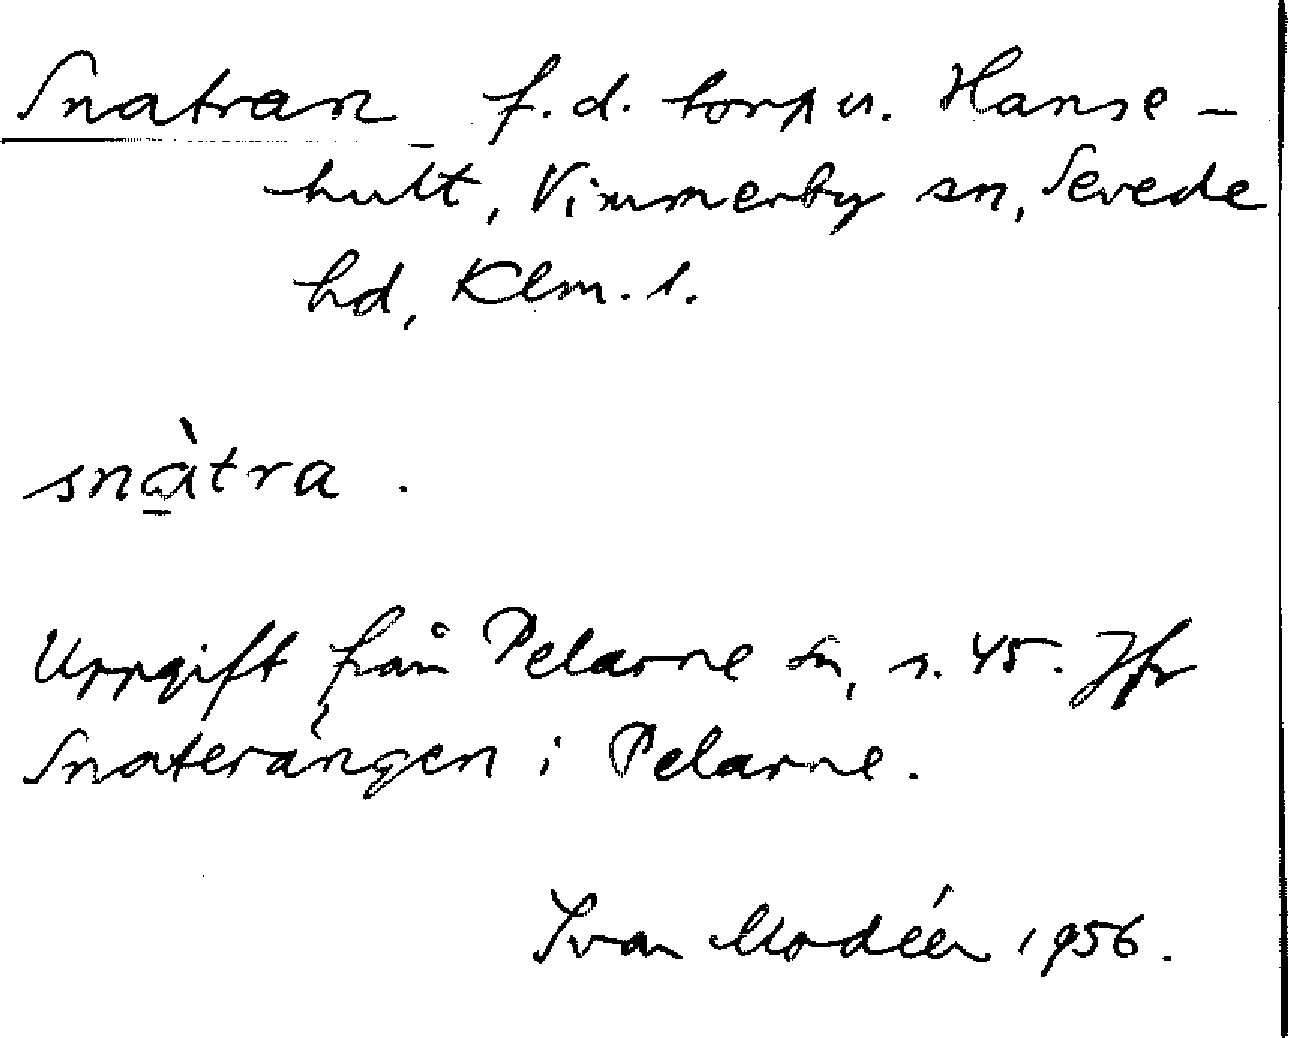 Snatran f.d. torp u. Hanse-
hult, Vimmerby sn, Sevede
hd, Klm. l.
snà̱tra.
Uppgift från Pelarne sn, s. 45. Jfr
Snaterängen i Pelarne.
Ivar Modéer 1956.